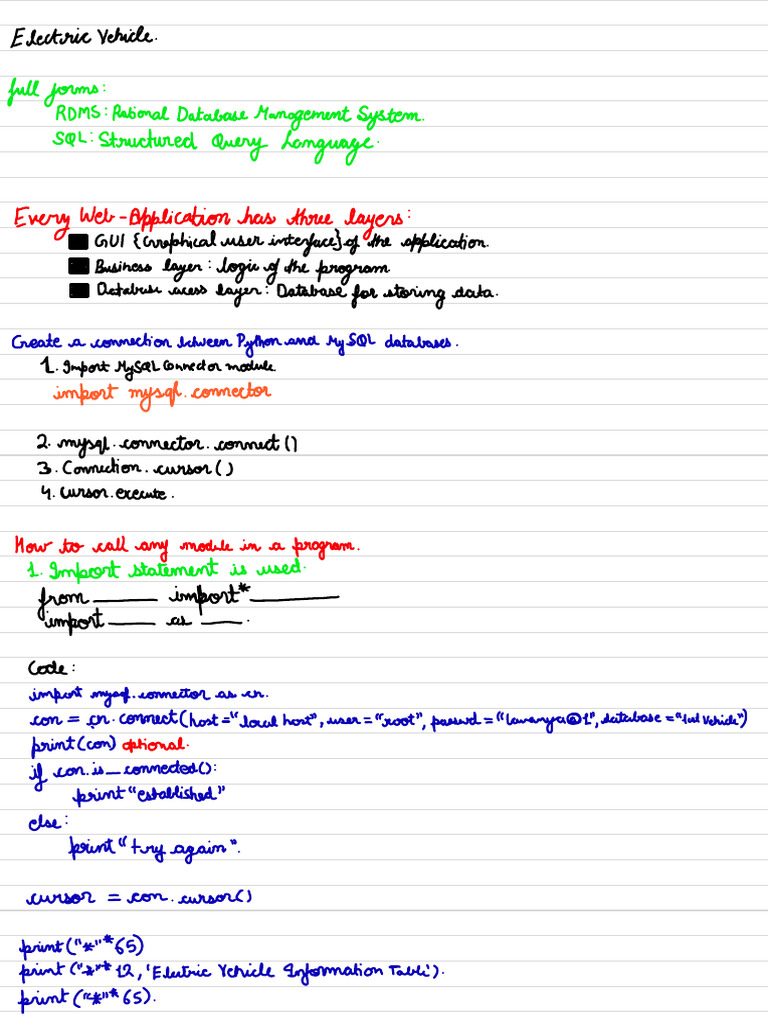 Electric Vehicle.
full forms:
RDMS: Rational Database Management System.
SQL: Structured Query Language.
Every Web-Application has three layers:
GUI {Graphical user interface} of the application.
Business layer: logic of the program
Database acess layer: Database for storing data.
Create a connection between Python and MySQL databases.
1. Import MySQL Connector module
import mysql.connector
2. mysql.connector.connect()
3. Connection.cursor()
4. cursor.execute.
How to call any module in a program.
1. Import statement is used.
from ______ import* ______
import ______ as ______.
Code:
import mysql.connector as cn.
con = cn.connect(host="local host", user="root", passwd="lavanya@1", database="1st Vehicle")
print(con) optional.
if con.is_connected():
print"established"
else:
print"try again".
cursor = con.cursor()
print("*"*65)
print("*"*12,'Electric Vehicle Information Table').
print("*"*65).